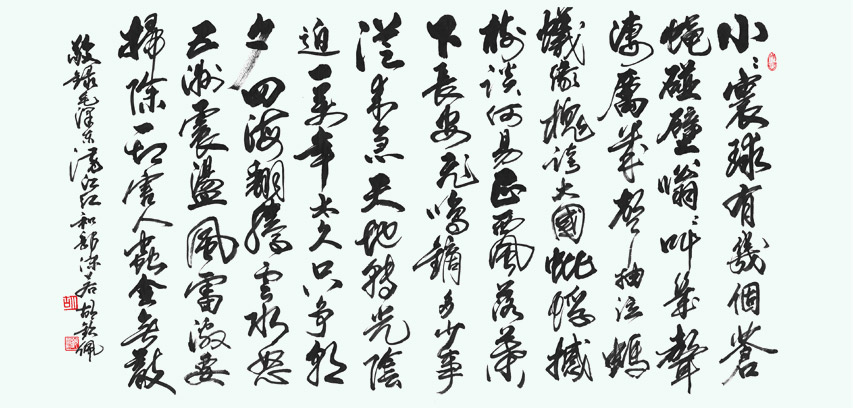 小〻寰球有幾個蒼
蠅碰壁嗡〻叫幾聲
淒厲幾聲抽泣螞
蟻緣槐誇大國蚍蜉撼
樹談何易正西風落葉
下長安飛鳴鏑多少事
從來急天地轉光陰
迫一萬年太久只爭朝
夕四海翻騰雲水怒
五洲震盪風雷激要
掃除一切害人蟲全無敵
敬錄毛澤東滿江紅和郭沫若